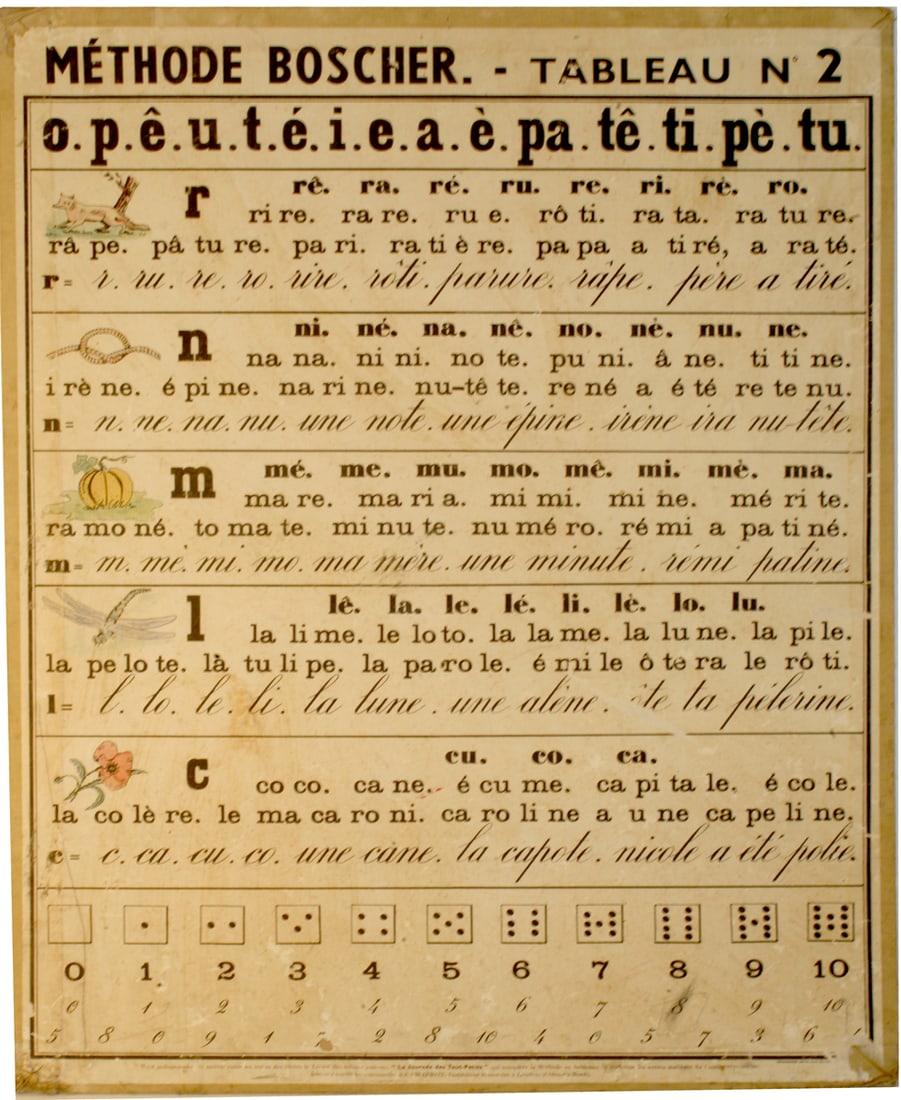 MÉTHODE BOSCHER. - TABLEAU N° 2
o.p.ê.u.t.é.i.e.a.è.pa.tê.ti.pè.tu.
r rê. ra. ré. ru. re. ri. rè. ro.
ri re. ra re. ru e. rô ti. ra ta. ra tu re.
râ pe. pâ tu re. pa ri. ra ti è re. pa pa a ti ré, a ra té.
r= r. ru. re. ro. rire. rôti. parure. râpe. père a tiré.
n ni. né. na. nê. no. nè. nu. ne.
na na. ni ni. no te. pu ni. â ne. ti ti ne.
i rè ne. é pi ne. na ri ne. nu-tê te. re né a é té re te nu.
n= n. ne. na. nu. une note. une épine. irène ira nu-tête.
m mé. me. mu. mo. mê. mi. mè. ma.
ma re. ma ri a. mi mi. mi ne. mé ri te.
ra mo né. to ma te. mi nu te. nu mé ro. ré mi a pa ti né.
m= m. mé. mi. mo. ma mère. une minute. rémi patine.
l lê. la. le. lé. li. lè. lo. lu.
la li me. le lo to. la la me. la lu ne. la pi le.
la pe lo te. là tu li pe. la pa ro le. é mi le ô te ra le rô ti.
l= l. lo. le. li. la lune. une alène. te ta pèlerine.
c cu. co. ca.
co co. ca ne. é cu me. ca pi ta le. é co le.
la co lè re. le ma ca ro ni. ca ro li ne a u ne ca pe li ne.
c= c. ca. cu. co. une cane. la capote. nicole a été polie.
0 1 2 3 4 5 6 7 8 9 10
0 1 2 3 4 5 6 7 8 9 10
5 8 0 9 1 7 2 8 10 4 0 5 7 3 6
"La Journée des Tout-Petits"